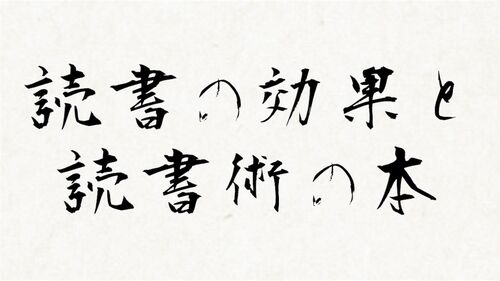 読書の効果と
読書術の本